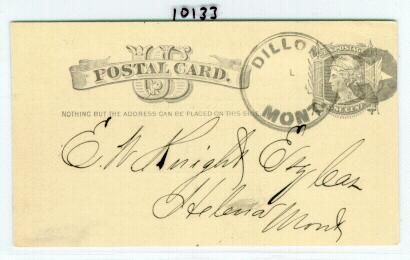 10133
US
POSTAL CARD.
DILLON
MONT.
POSTAGE
ONE CENT
NOTHING BUT THE ADDRESS CAN BE PLACED ON THIS SIDE
E. W. Knight Esq Cas
Helena
Mont